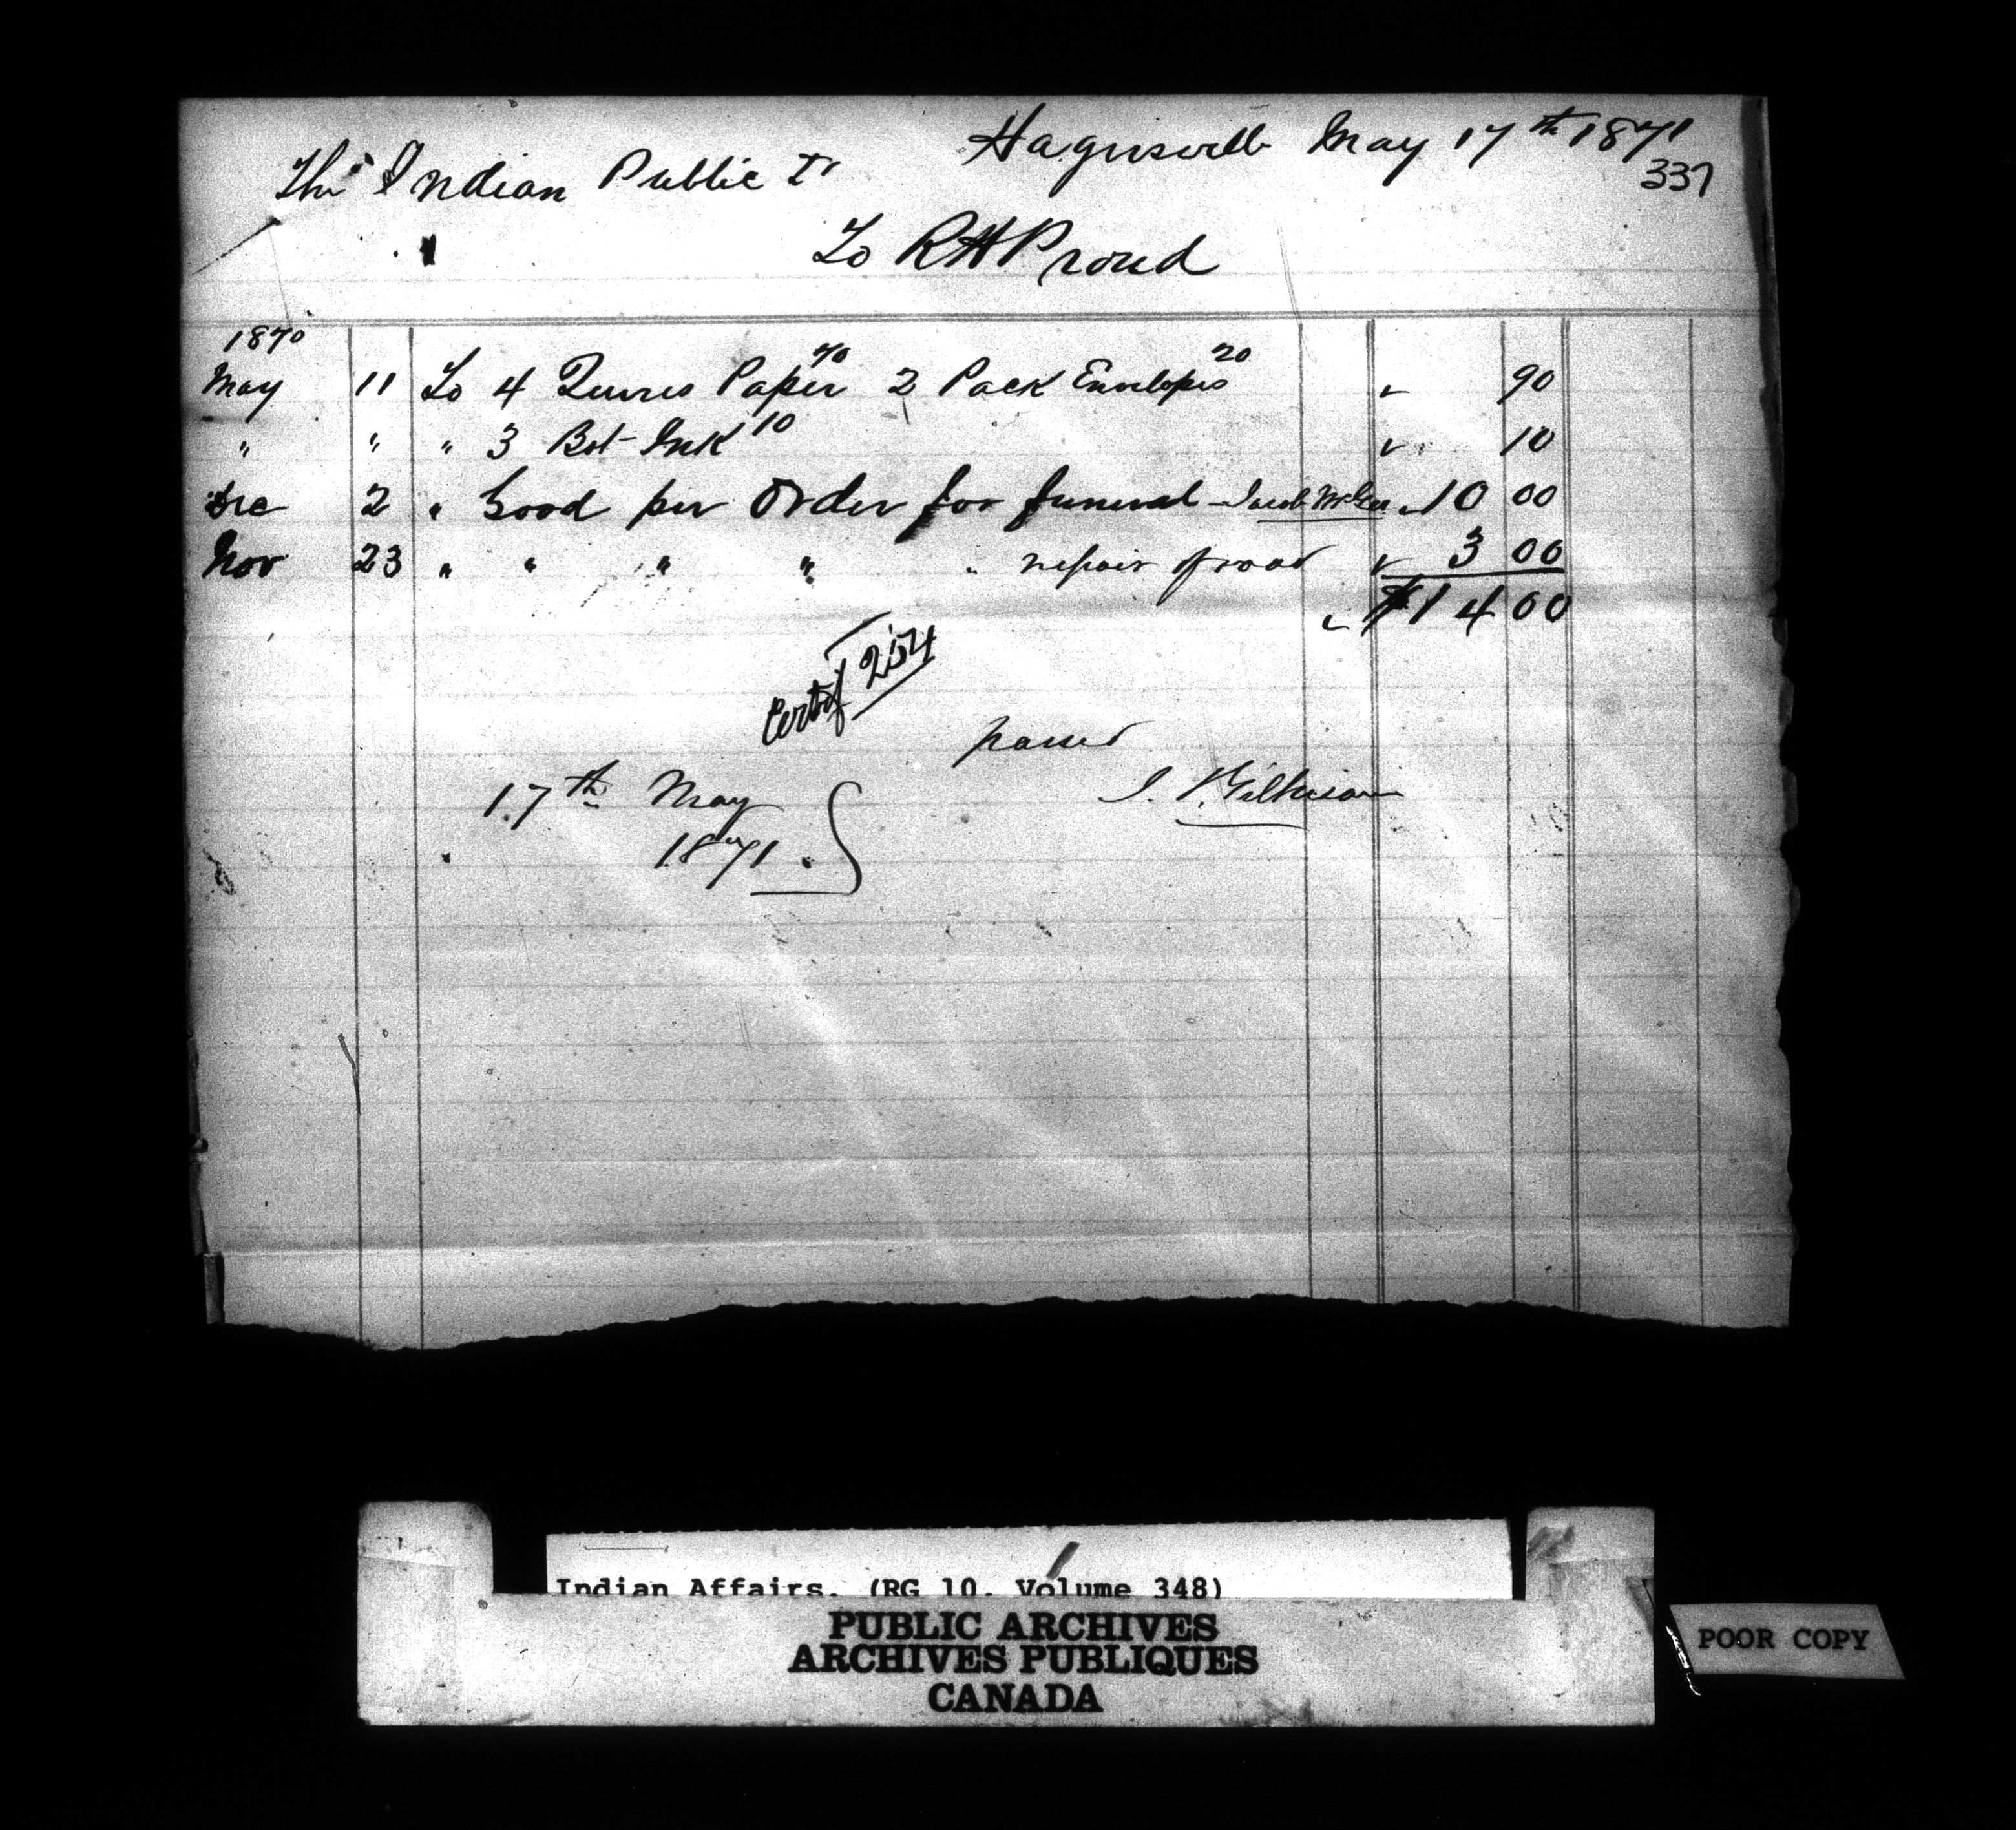 Hagersvill May 17th 1871
337
The Indian Public Dr
To RHProud
1870
May 11 To 4 Quires Paper 70 2 Pack Envelopes 20 90
" " " 3 Bot Ink 10 10
Dec 2 " Good per Order for funeral - Jacob 10 00
Nov 23 " " " " " repair of road 3 00
$14 00
Certif 254
passed
17th May
1871.
J. Gilkison
Indian Affairs. (RG 10, Volume 348)
PUBLIC ARCHIVES
ARCHIVES PUBLIQUES
CANADA
POOR COPY